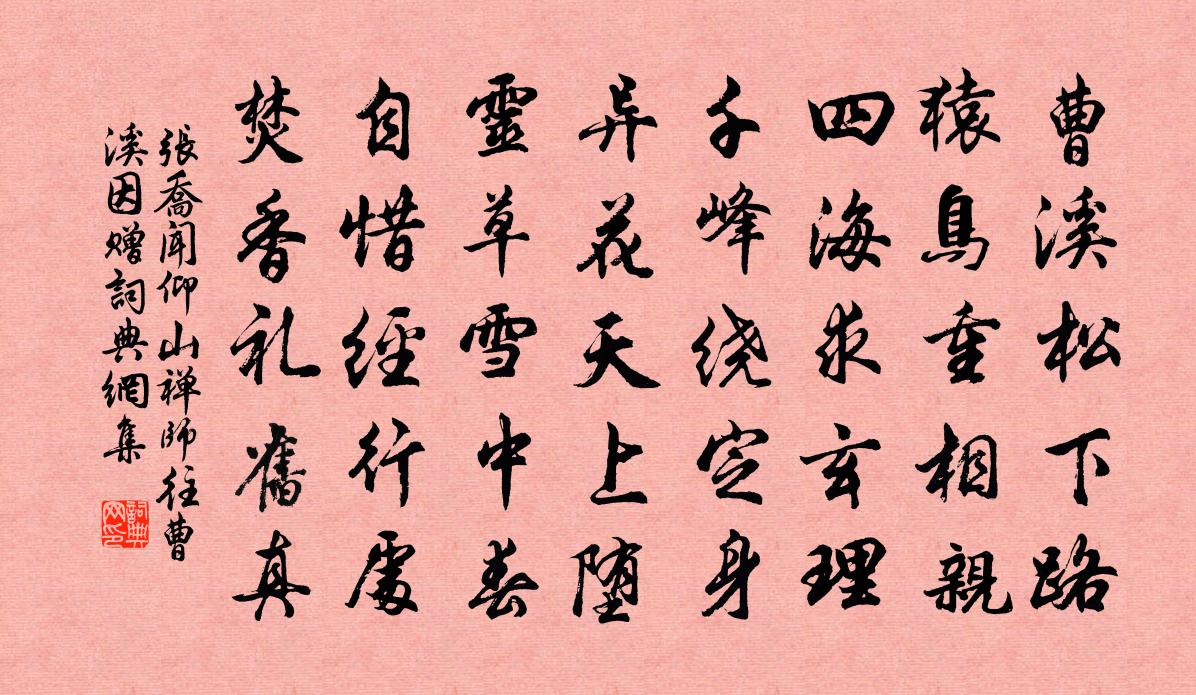 曹溪松下路
猿鳥重相親
四海求玄理
千峰绕定身
异花天上堕
靈草雪中春
自惜經行處
焚香礼舊真
張喬聞仰山禅師往曹
溪因赠詞典網集
詞典
网印